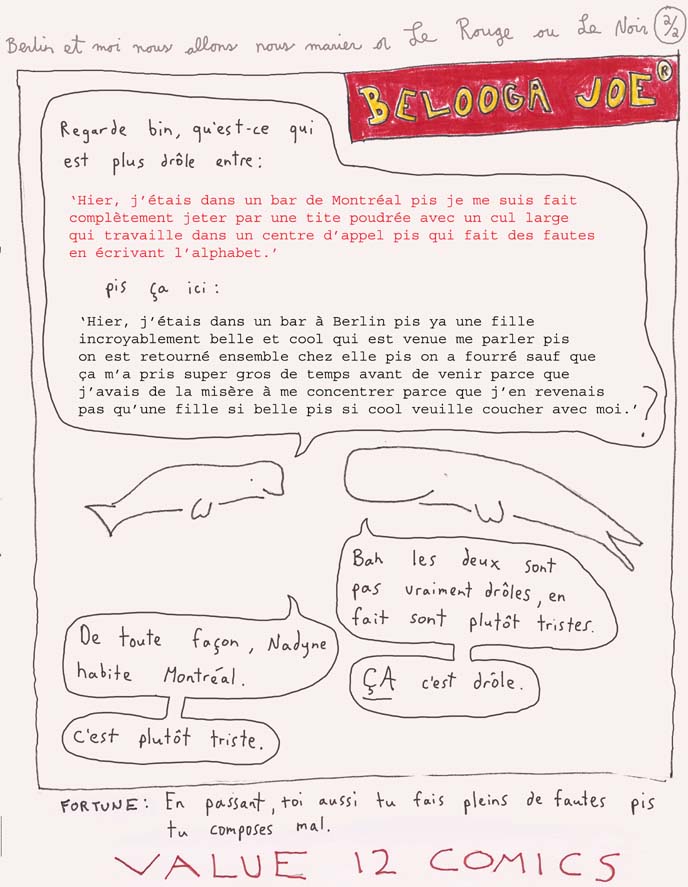 Berlin et moi nous allons nous marier et Le Rouge ou Le Noir 2/2
BELOOGA JOE®
Regarde bin, qu'est-ce qui
est plus drôle entre:
'Hier, j'étais dans un bar de Montréal pis je me suis fait
complètement jeter par une tite poudrée avec un cul large
qui travaille dans un centre d'appel pis qui fait des fautes
en écrivant l'alphabet.'
pis ça ici:
'Hier, j'étais dans un bar à Berlin pis ya une fille
incroyablement belle et cool qui est venue me parler pis
on est retourné ensemble chez elle pis on a fourré sauf que
ça m'a pris super gros de temps avant de venir parce que
j'avais de la misère à me concentrer parce que j'en revenais
pas qu'une fille si belle pis si cool veuille coucher avec moi.'?
Bah les deux sont
pas vraiment drôles, en
fait sont plutôt tristes.
De toute façon, Nadyne
habite Montréal.
ÇA c'est drôle.
c'est plutôt triste.
FORTUNE: En passant, toi aussi tu fais pleins de fautes pis
tu composes mal.
VALUE 12 COMICS